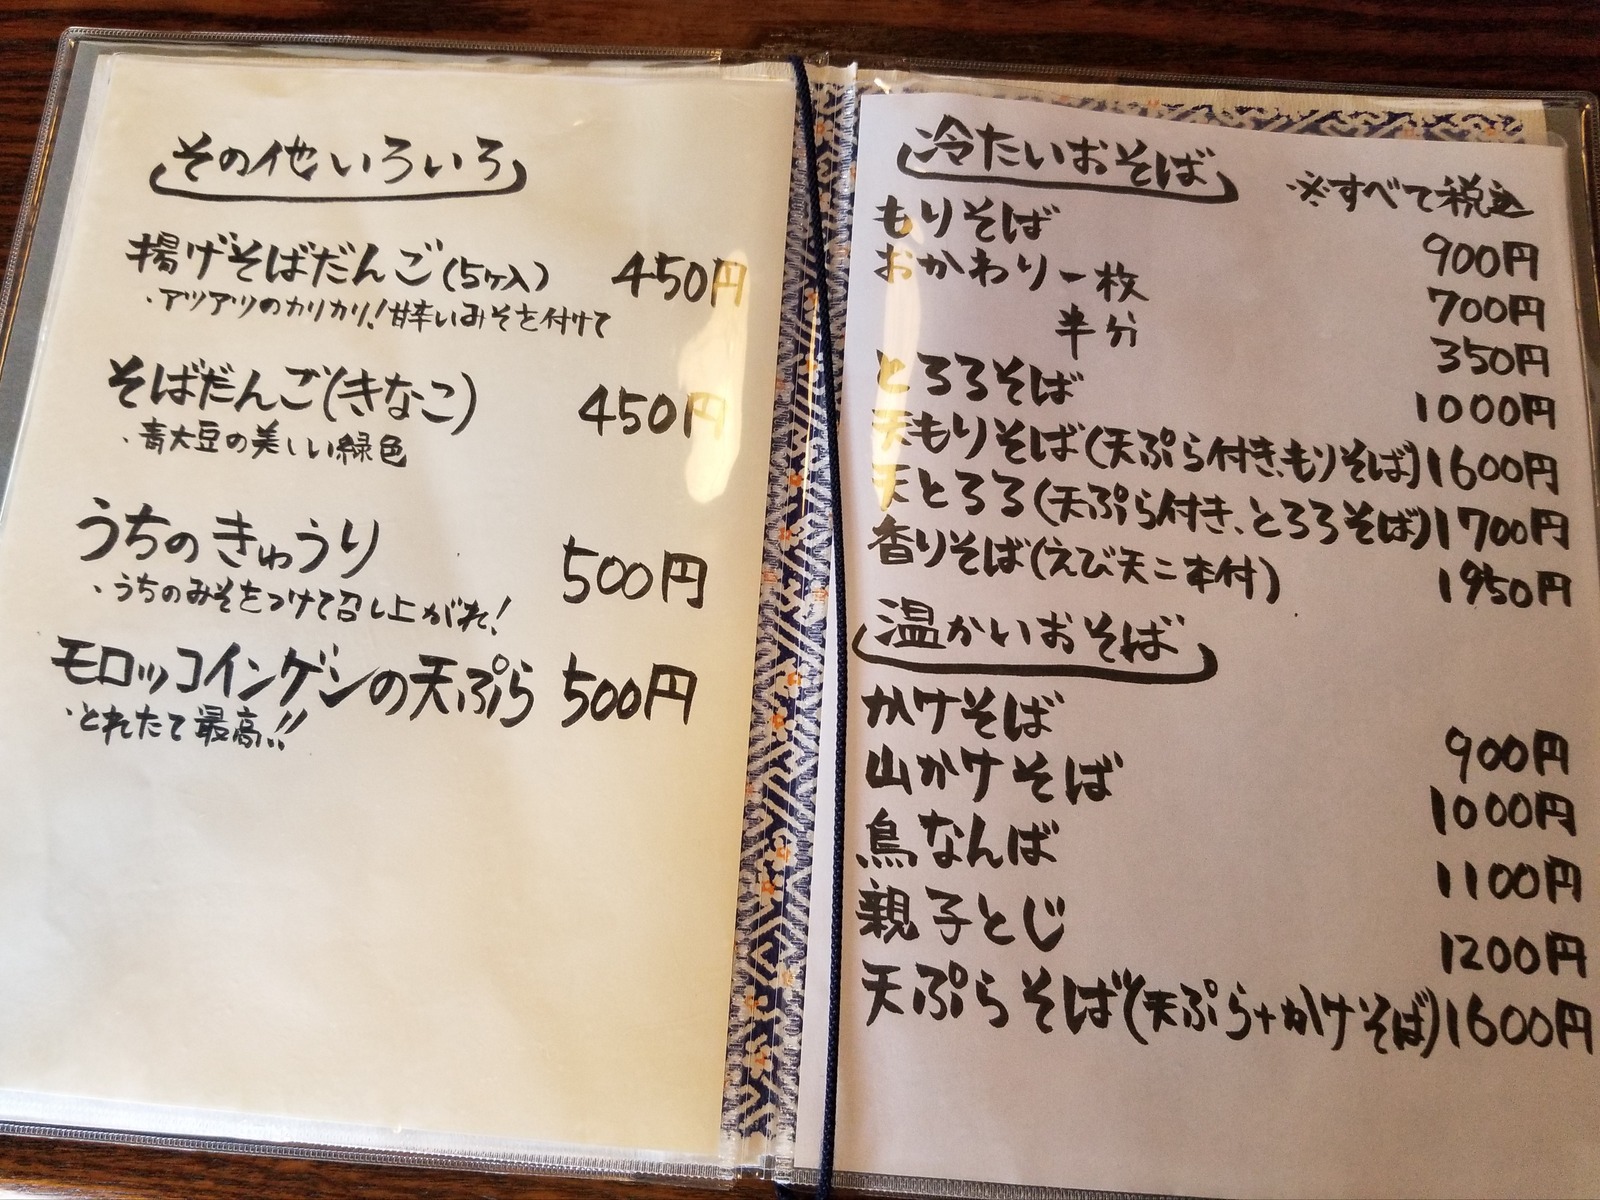 その他いろいろ
揚げそばだんご(5ヶ入) 450円
・アツアツのカリカリ!甘辛いみそを付けて
そばだんご(きなこ) 450円
・青大豆の美しい緑色
うちのきゅうり 500円
・うちのみそをつけて召し上がれ!
モロッコインゲンの天ぷら 500円
・とれたて最高!!
冷たいおそば ※すべて税込
もりそば 900円
おかわり一枚 700円
半分 350円
とろろそば 1000円
天もりそば(天ぷら付き、もりそば) 1600円
天とろろ(天ぷら付き、とろろそば) 1700円
香りそば(えび天二本付) 1950円
温かいおそば
かけそば 900円
山かけそば 1000円
鳥なんば 1100円
親子とじ 1200円
天ぷらそば(天ぷら+かけそば) 1600円